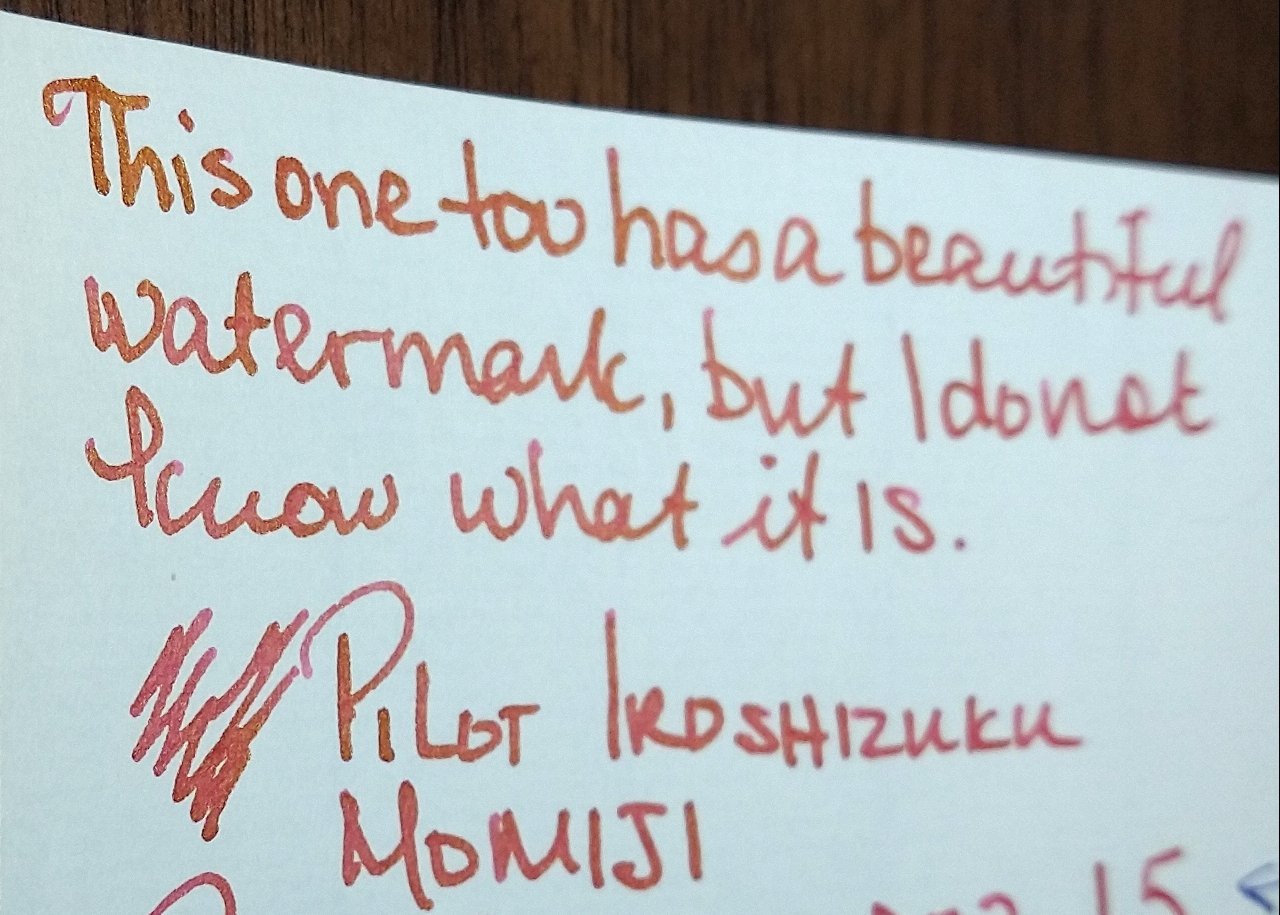 This one too has a beautiful
watermark, but I do not
know what it is.
PILOT IROSHIZUKU
MOMIJI
15